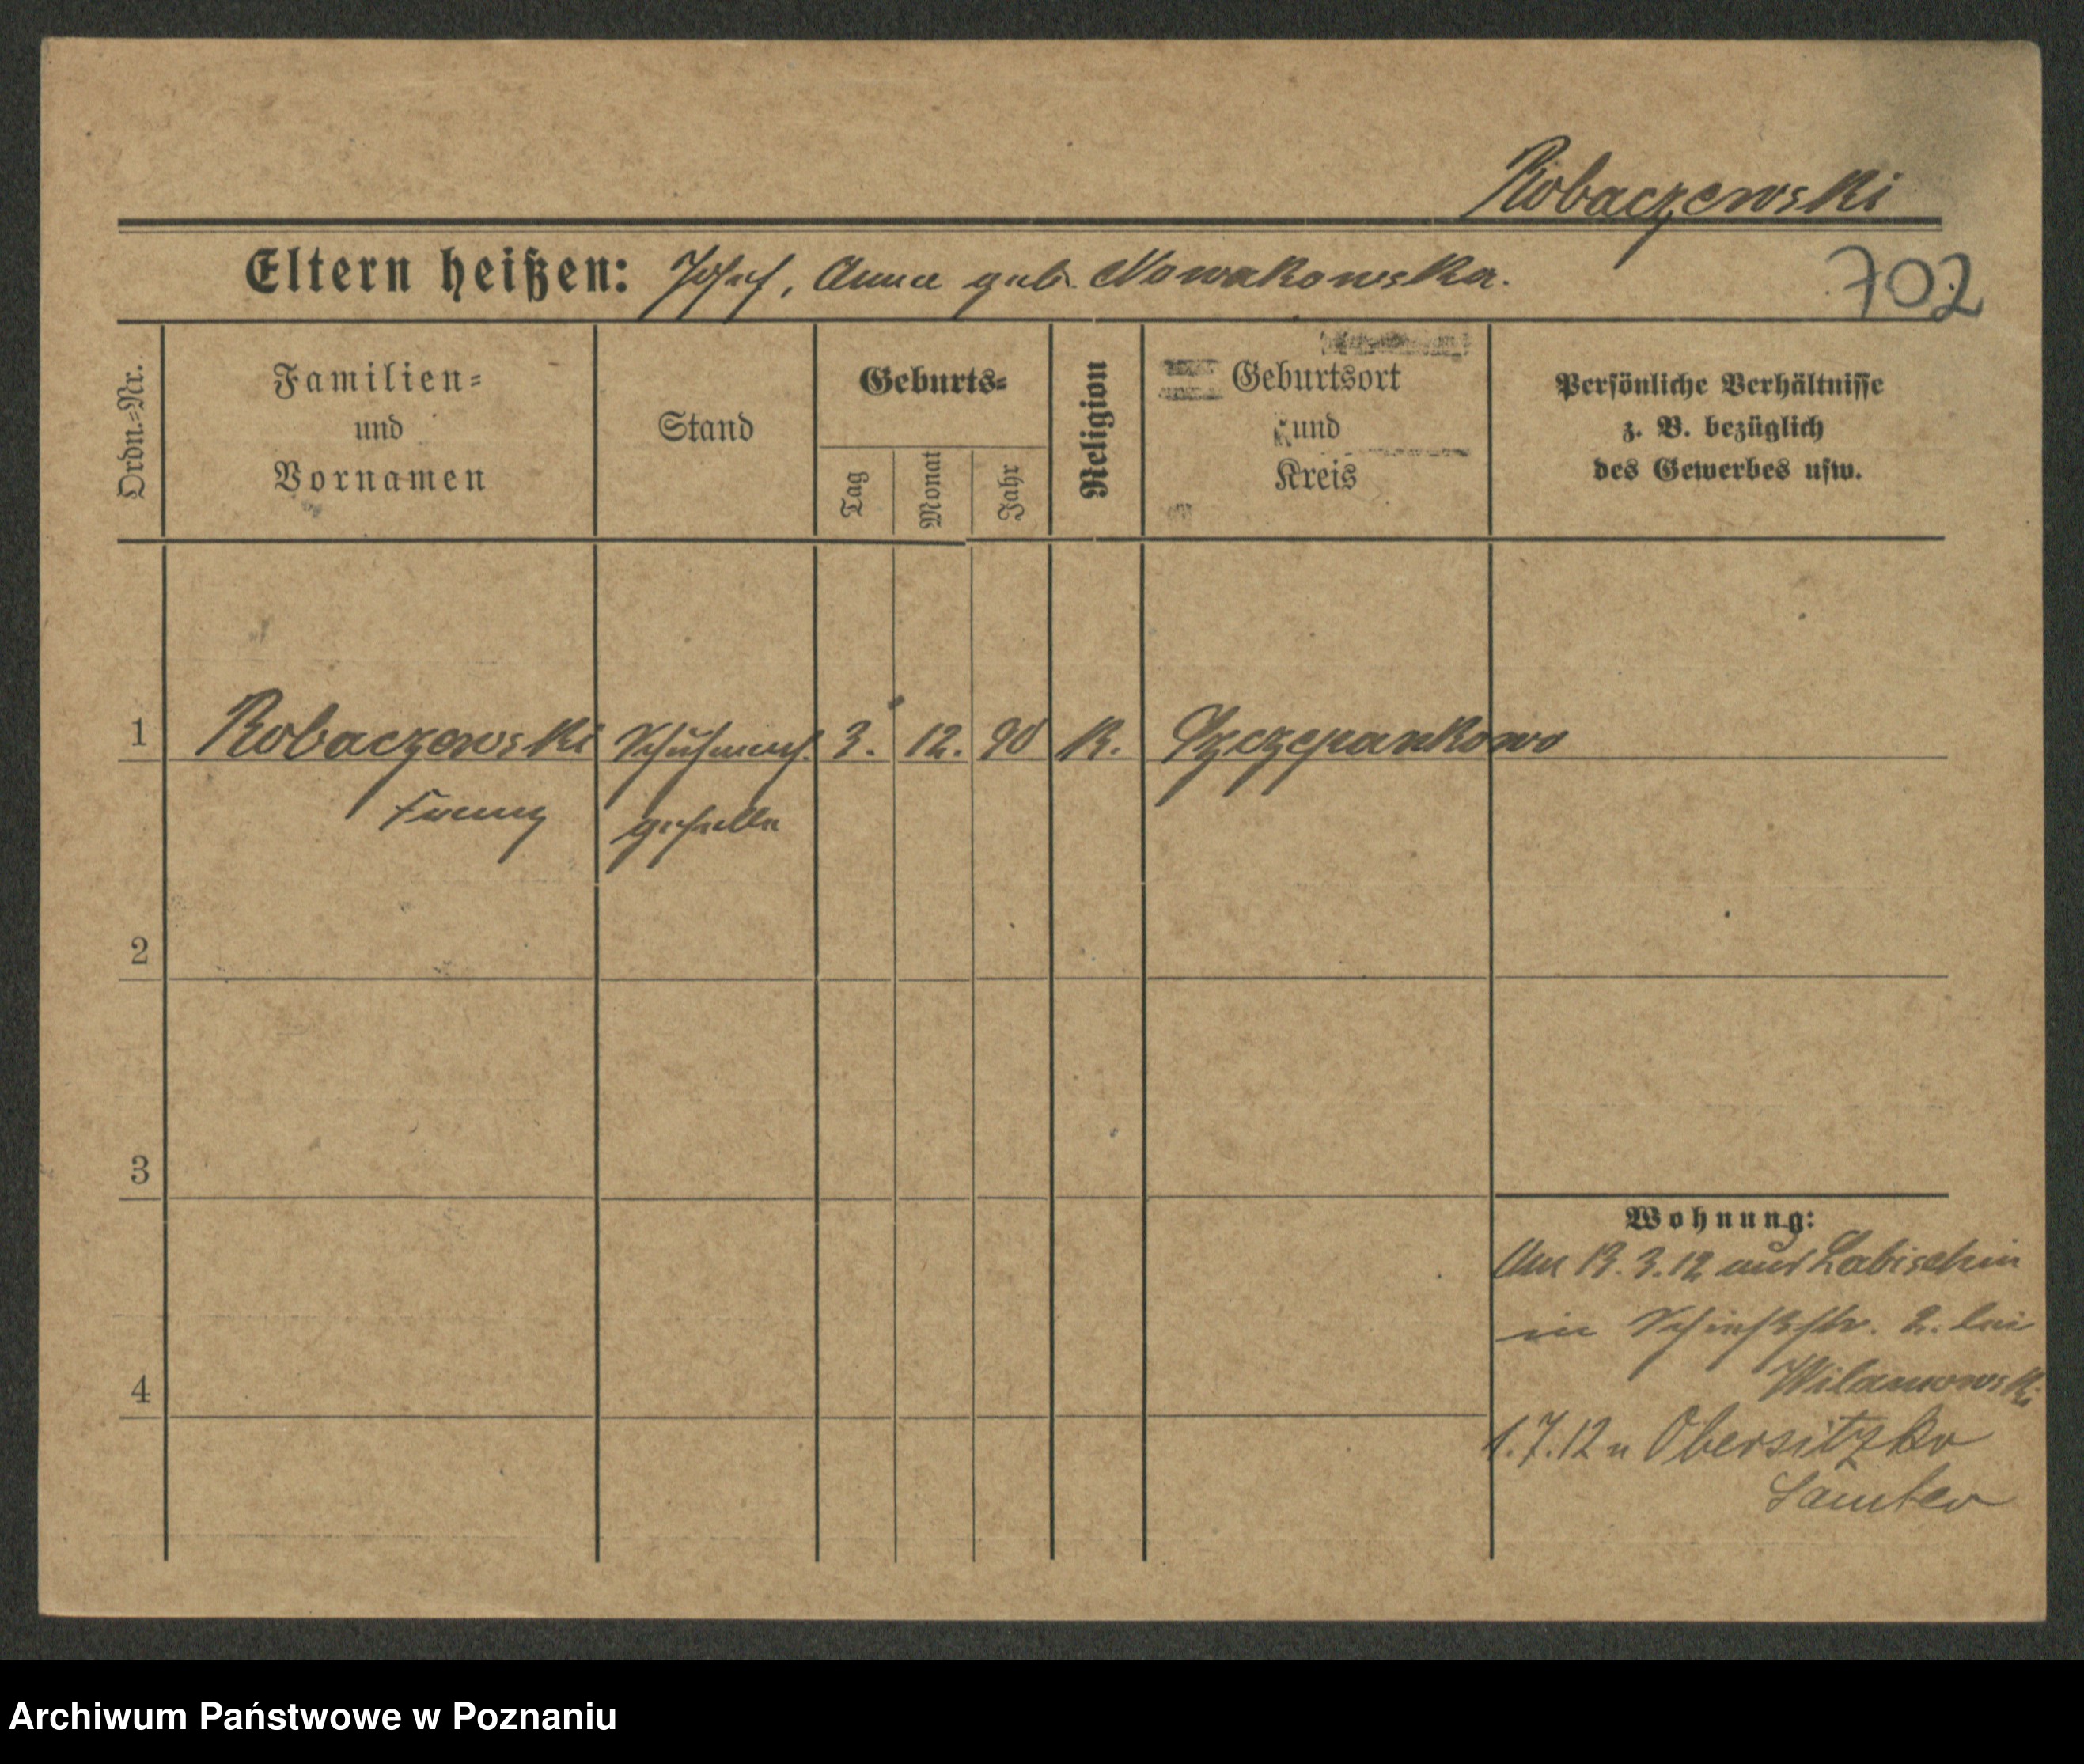 Robaczewski
Eltern heißen: Josef, Anna geb. Nowakowska.
702
Ordn.=Nr.
Familien=
und
Vornamen
Stand
Geburts=
Tag
Monat
Jahr
Religion
Geburtsort
und
Kreis
Persönliche Verhältnisse
z. B. bezüglich
des Gewerbes usw.
1 Robaczewski Schuhmach. 3. 12. 90 K. Szczepankowo
Franz geselle
2
3
Wohnung:
Am 13.3.12 aus Labischin
in Schießstr. 2. bei
Wilamowski
4
1.7.12 n Obersitzko
Samter
Archiwum Państwowe w Poznaniu